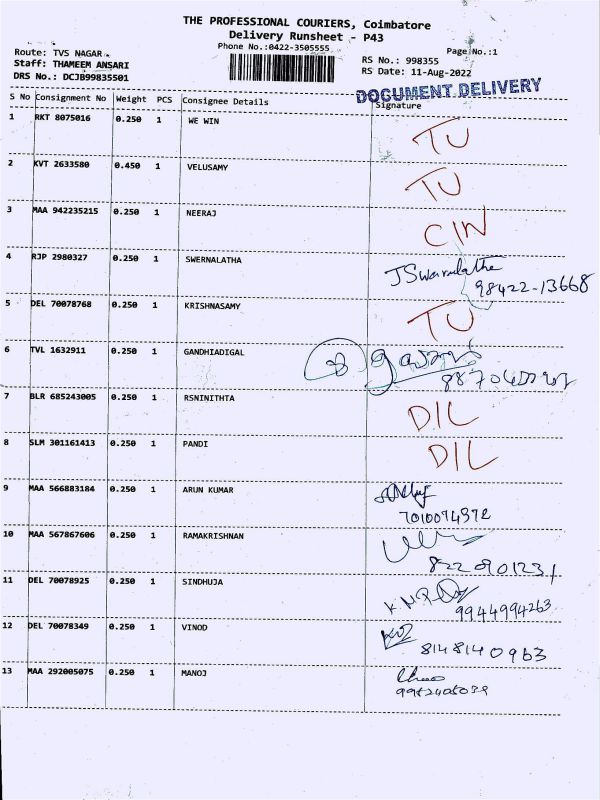 THE PROFESSIONAL COURIERS, Coimbatore
Delivery Runsheet - P43
Phone No.:0422-3505555
Page No.:1
Route: TVS NAGAR
Staff: THAMEEM ANSARI
DRS No.: DCJB99835501
RS No.: 998355
RS Date: 11-Aug-2022
DOCUMENT DELIVERY
S No Consignment No Weight PCS Consignee Details Signature
1 RKT 8075016 0.250 1 WE WIN TU
2 KVT 2633580 0.450 1 VELUSAMY TU
3 MAA 942235215 0.250 1 NEERAJ CIN
4 RJP 2980327 0.250 1 SWERNALATHA J Swarnalatha
98422-13668
5 DEL 70078768 0.250 1 KRISHNASAMY TU
6 TVL 1632911 0.250 1 GANDHIADIGAL
7 BLR 685243005 0.250 1 RSNINITHTA DIL
8 SLM 301161413 0.250 1 PANDI DIL
9 MAA 566883184 0.250 1 ARUN KUMAR
7010074972
10 MAA 567867606 0.250 1 RAMAKRISHNAN
8220901231
11 DEL 70078925 0.250 1 SINDHUJA
9944994263
12 DEL 70078349 0.250 1 VINOD
8148140963
13 MAA 292005075 0.250 1 MANOJ